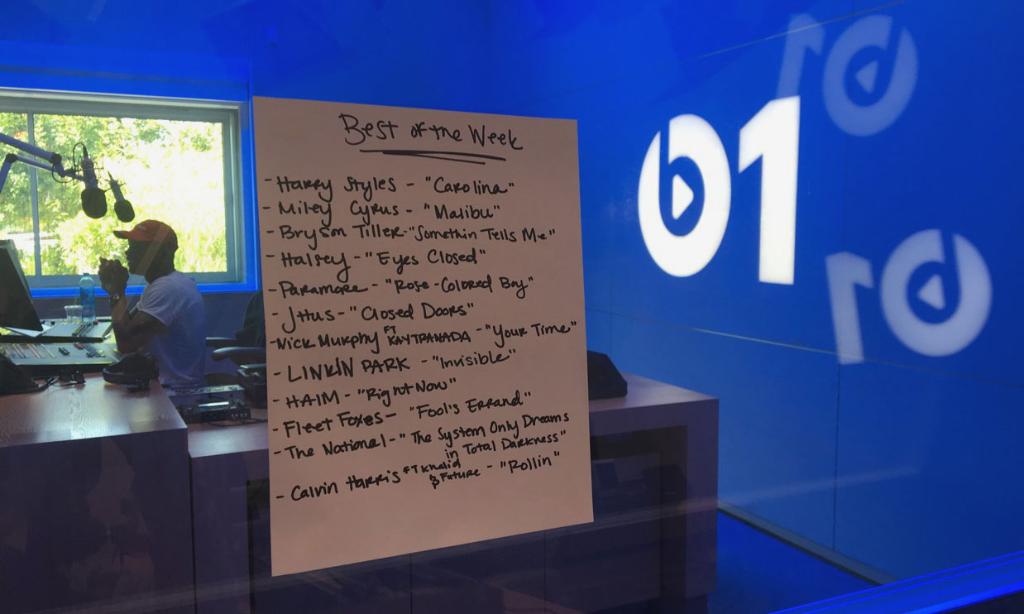 Best of the Week
- Harry Styles - "Carolina"
- Miley Cyrus - "Malibu"
- Bryson Tiller - "Somethin Tells Me"
- Halsey - "Eyes Closed"
- Paramore - "Rose-Colored Boy"
- J Hus - "Closed Doors"
- Nick Murphy FT KAYTRANADA - "Your Time"
- LINKIN PARK - "Invisible"
- HAIM - "Right Now"
- Fleet Foxes - "Fool's Errand"
- The National - "The System Only Dreams
in Total Darkness"
- Calvin Harris FT Khalid
& Future - "Rollin"
b1